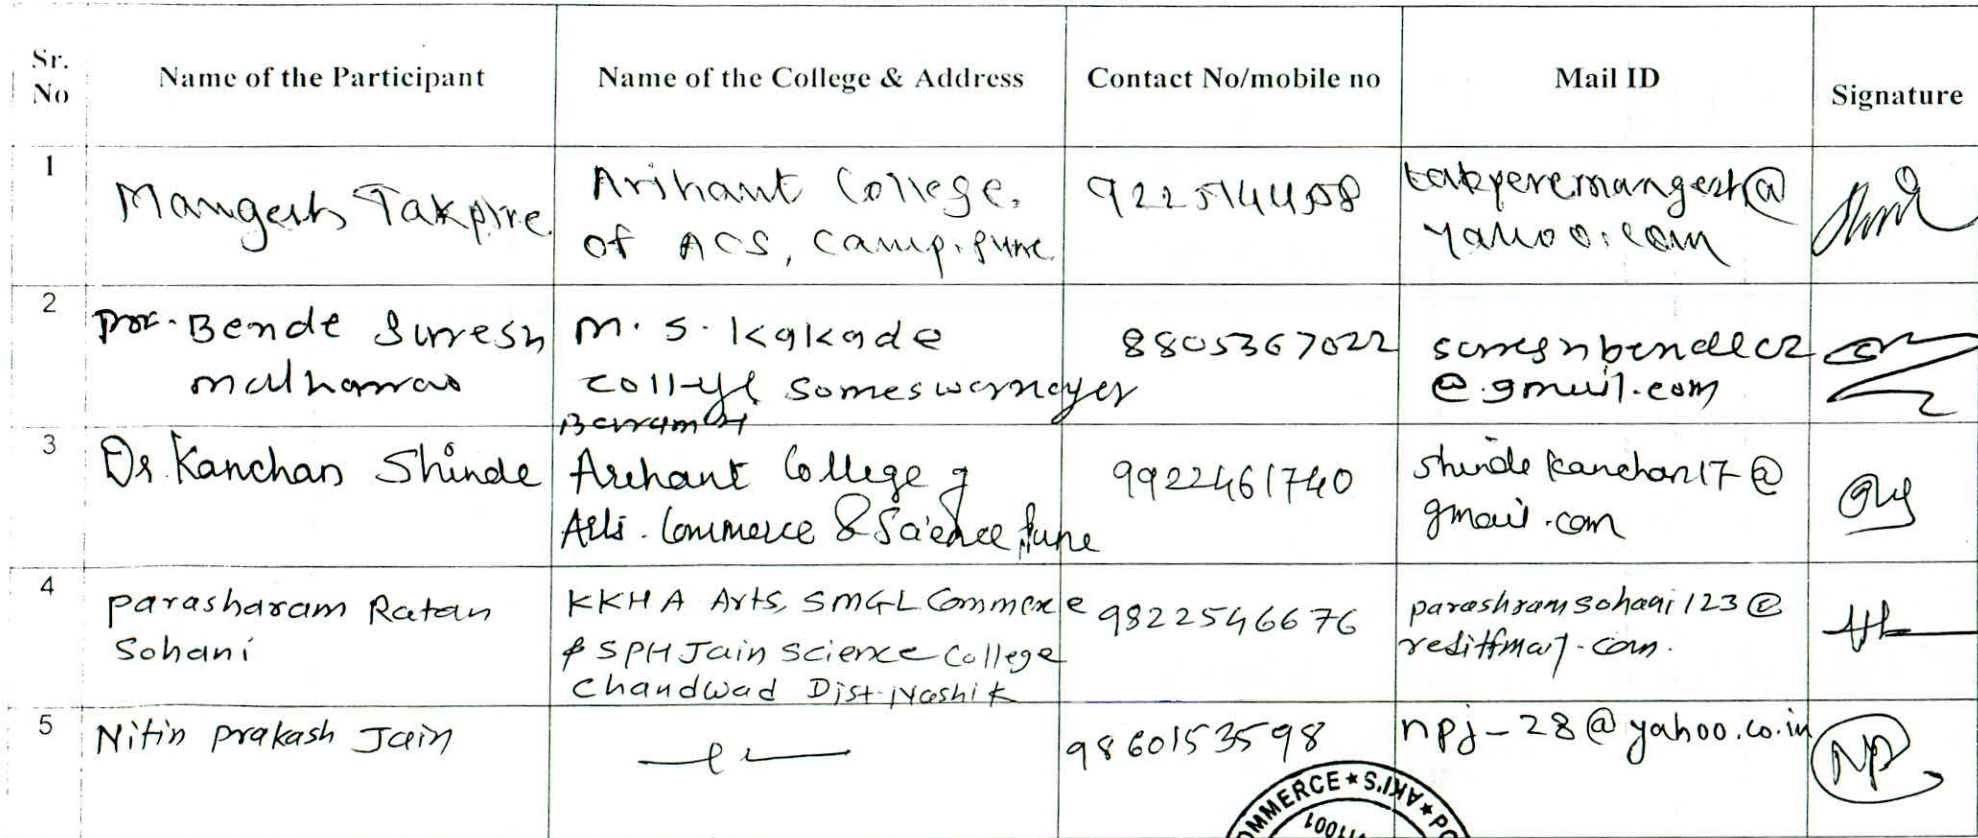 Sr. No
Name of the Participant
Name of the College & Address
Contact No/mobile no
Mail ID
Signature
1
Mangesh Takpire
Arihant College,
of ACS, Camp, Pune
9225144508
takperemangesh@
yahoo.com
2
Prof. Bende Suresh
malharrao
M. S. Kakade
college someswarnager
Baramati
8805367022
@gmail.com
3
Dr. Kanchan Shinde
Arihant College of
Arts. Commerce & Science, Pune
9922461740
shindekanchan17@
gmail.com
4
Parasharam Ratan
Sohani
KKHA Arts, SMGL Commerce
& SPH Jain Science College
Chandwad Dist-Nashik
9822546676
parashramsohani123@
rediffmail.com.
5
Nitin Prakash Jain
9860153598
npj-28@yahoo.co.in
NP
OMMERCE ★ AKI'S